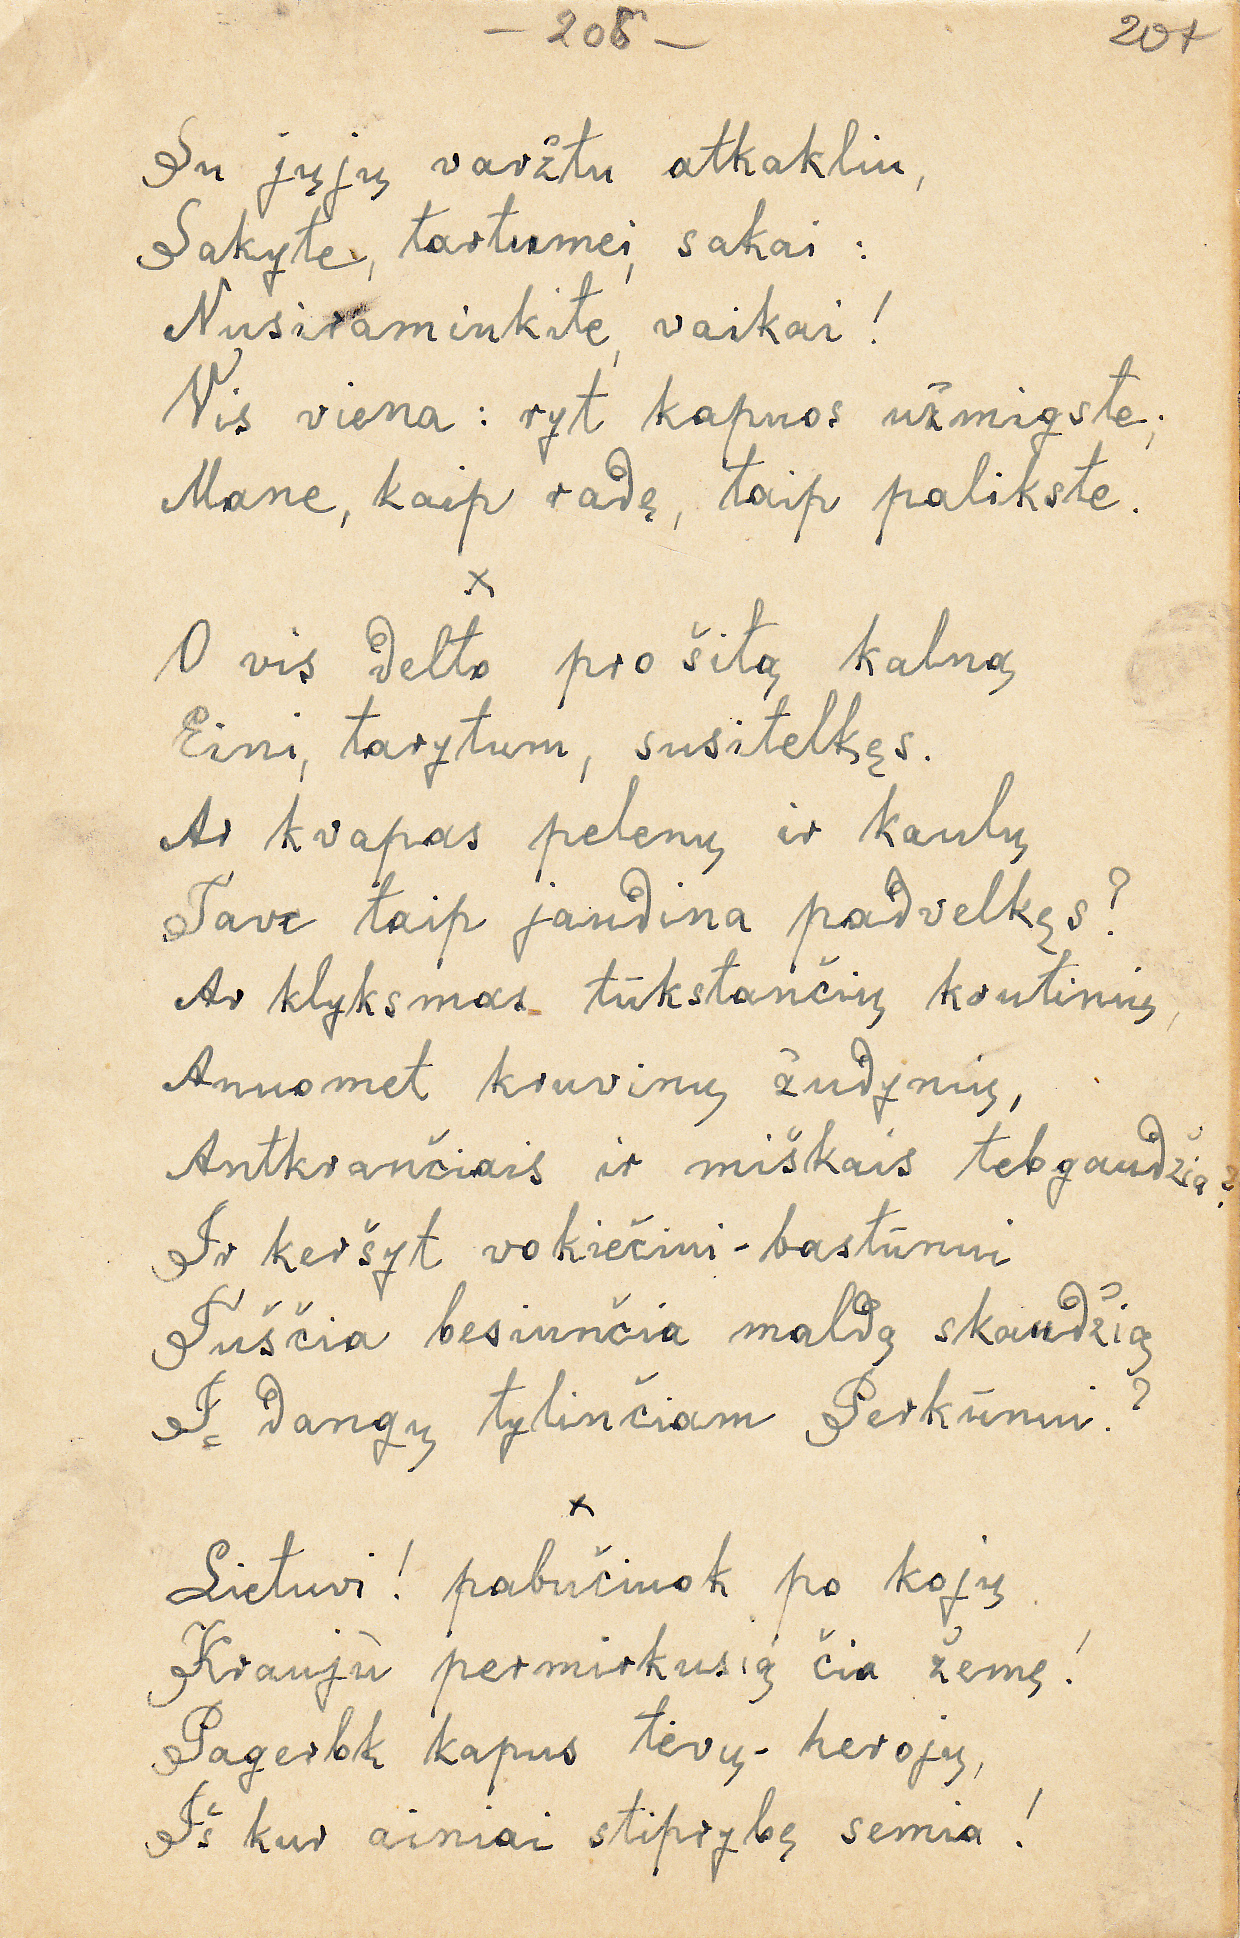 - 208 - 207
Su jųjų varžtu atkakliu,
Sakyte, tartumei, sakai :
Nusiraminkite, vaikai !
Vis viena : ryt kapuos užmigste;
Mane, kaip radę, taip palikste.
x
O vis delto pro šitą kalną
Eini, tarytum, susitelkęs.
Ar kvapas pelenų ir kaulų
Tave taip jaudina padvelkęs?
Ar klyksmas tūkstančių krutinių,
Anuomet kruvinų žudynių,
Antkrančiais ir miškais tebgaudžia?
Ir keršyt vokiečiui-bastūnui
Tuščia besiunčia maldą skaudžią
Į dangų tylinčiam Perkūnui?
x
Lietuvi! pabučiuok po kojų
Kraujù permirkusią čia žemę!
Pagerbk kapus tėvų-herojų,
Iš kur ainiai stiprybę semia!